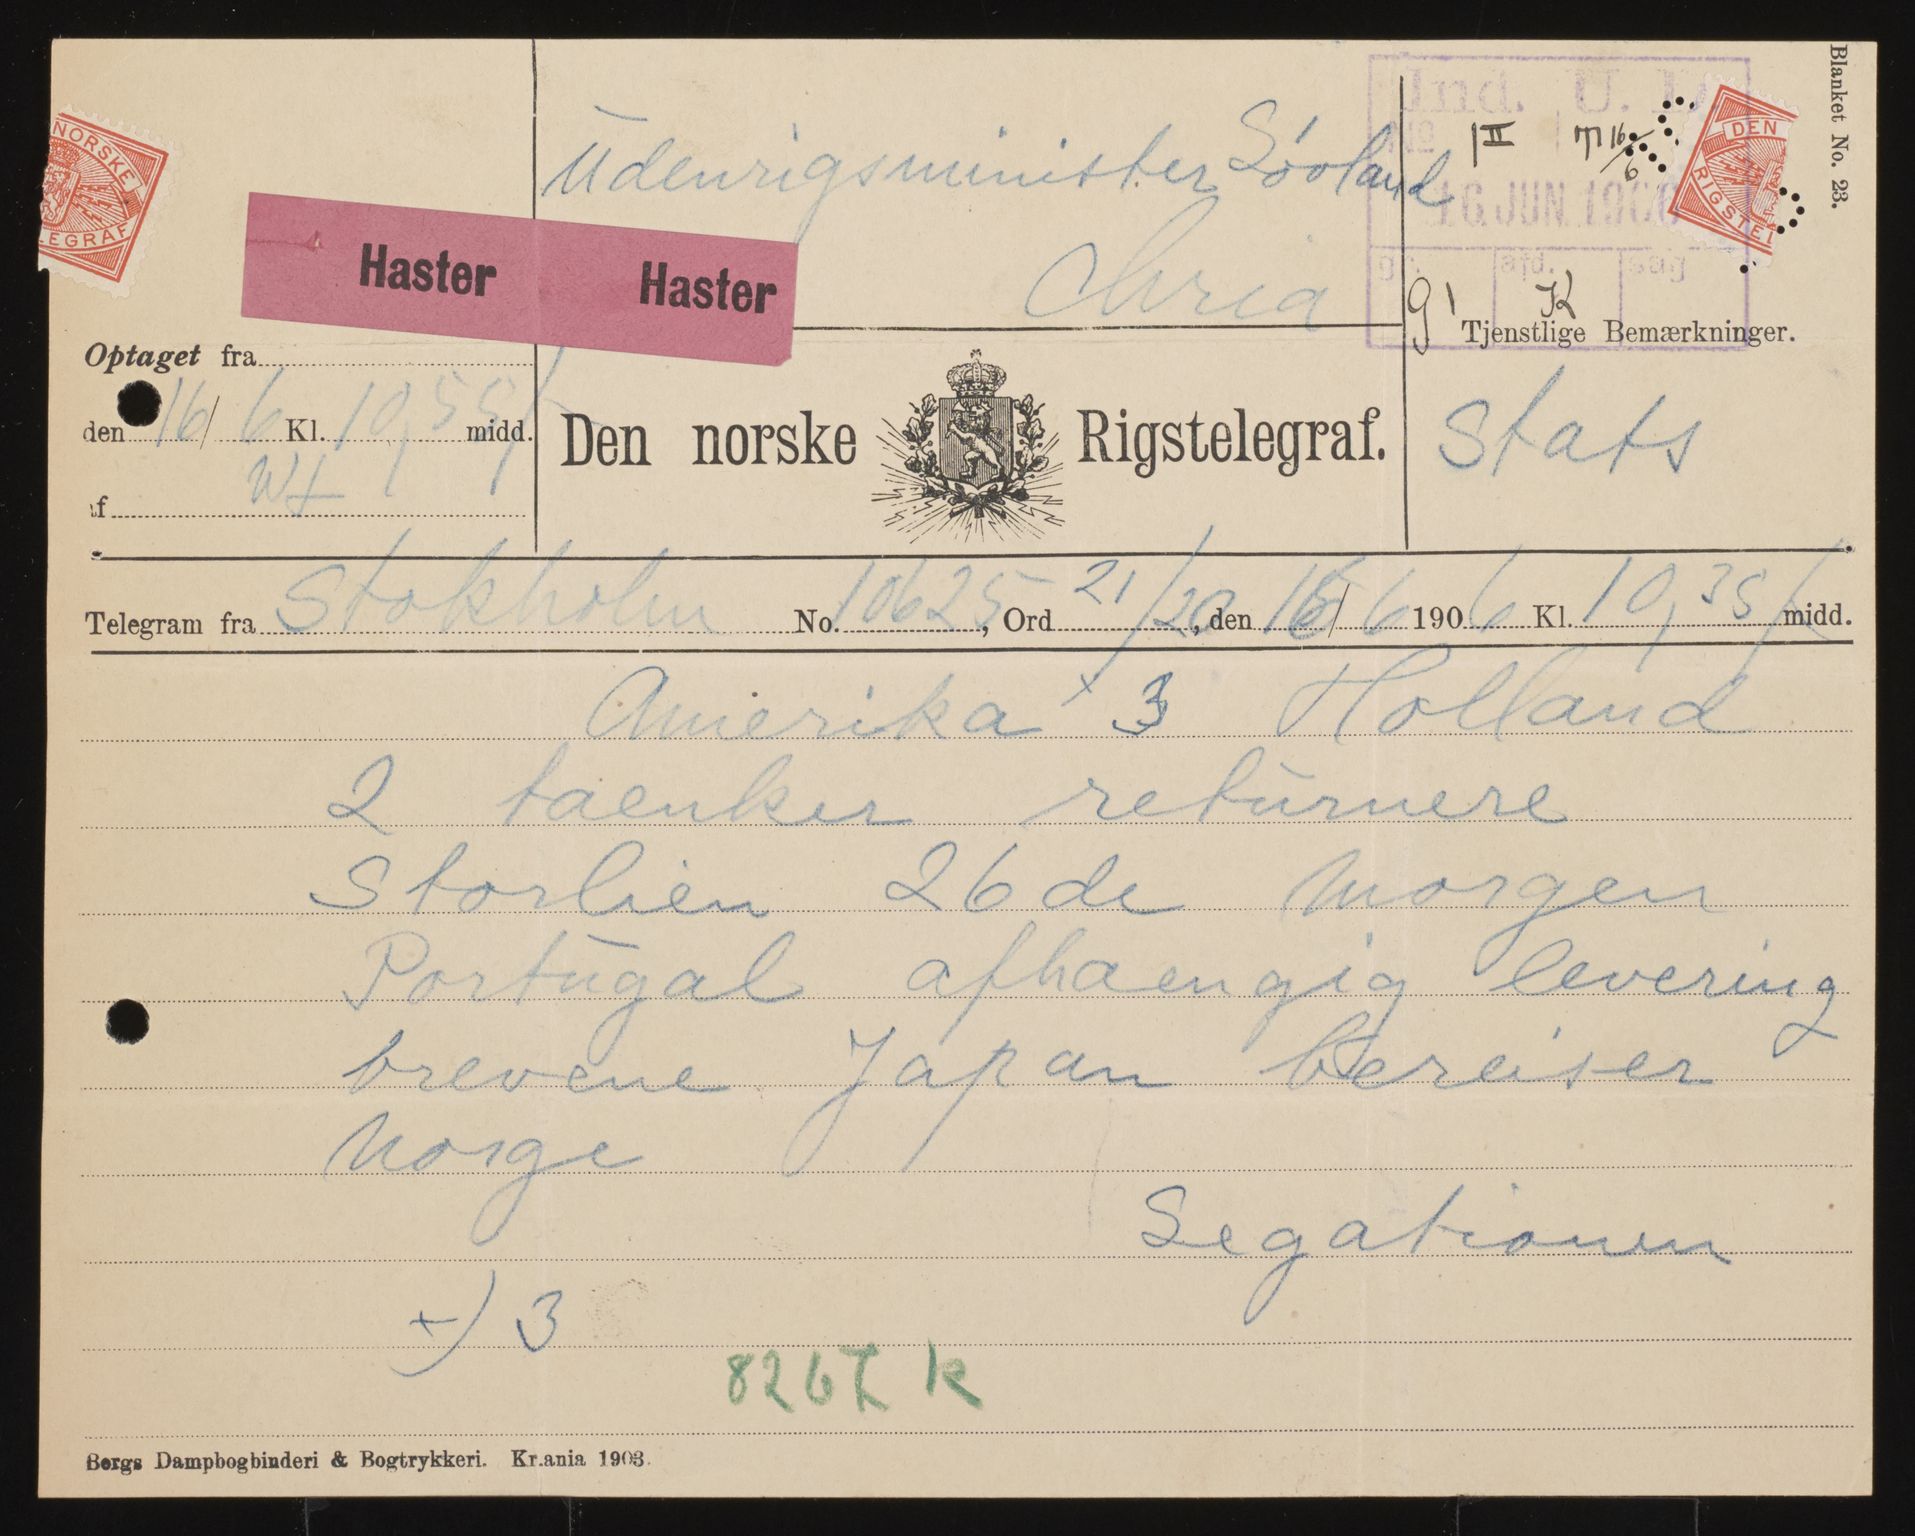 Blanket No. 23.
NORSKE
LEGRAF
DEN
RIGSTEL
Ind. U. D.
No
16 JUN. 1906
afd. sag
II 16/6
g1 K
Udenrigsminister Lövland
Chria
Haster Haster
Optaget fra
den 16/6 Kl. 10,55 midd.
af
Den norske Rigstelegraf.
Tjenstlige Bemærkninger.
Stats
Telegram fra Stokholm No. 10625, Ord 21/20, den 16/6 1906 Kl. 10,35 midd.
Amerika x 3 Holland
2 taenker returnere
Storlien 26de morgen
Portugal afhaengig levering
brevene Japan bereiser
Norge
Legationen
x) 3
8267 k
Bergs Dampbogbinderi & Bogtrykkeri. Kr.ania 1903.